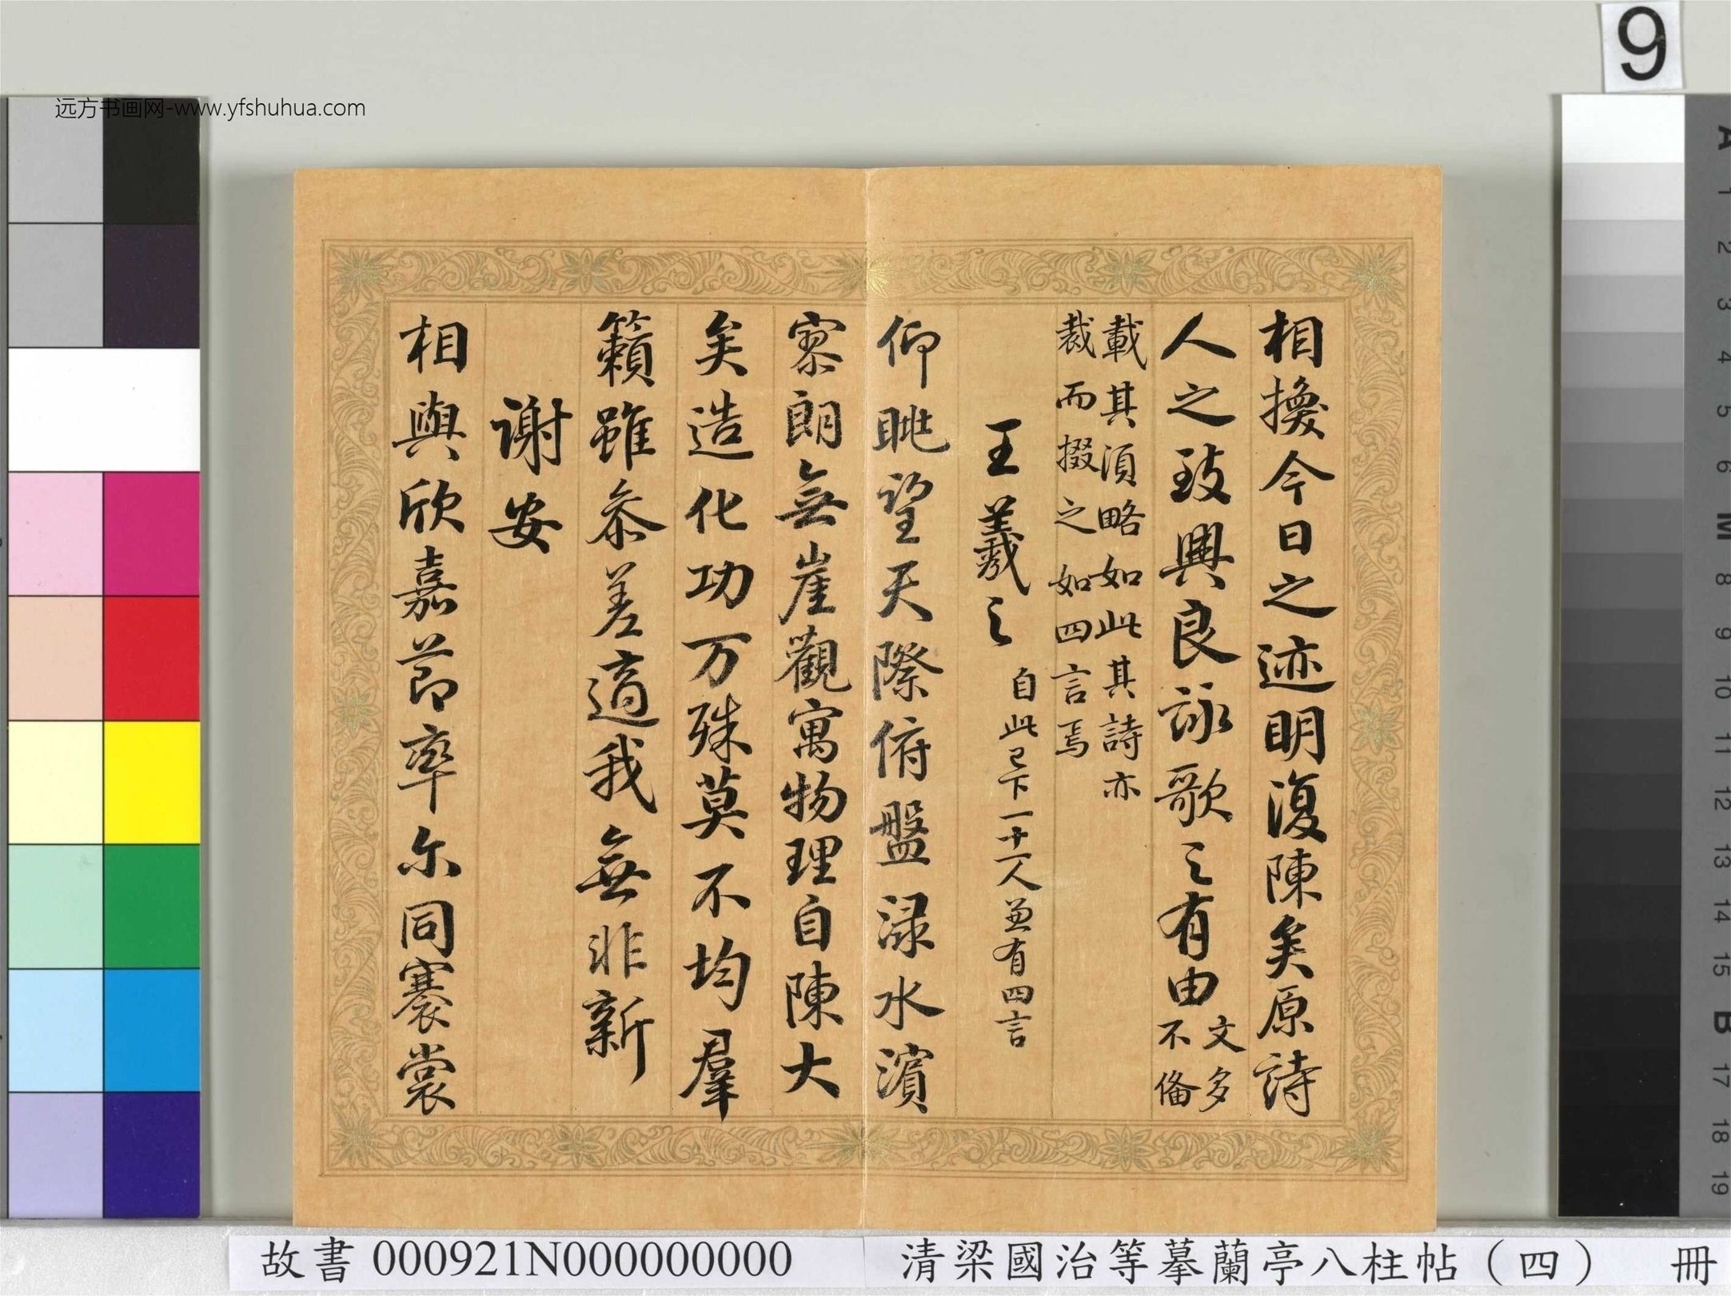 9
远方书画网-www.yfshuhua.com
相換今日之迹明復陳矣原詩
人之致興良詠歌之有由
文多
不俻
載其湏略如此其詩亦
裁而掇之如四言焉
王羲之
自此已下一十一人兼有四言
仰眺望天際俯盤渌水濱
寥朗無崖觀寓物理自陳大
矣造化功万殊莫不均羣
籟雖叅差適我無非新
謝安
相與欣嘉節率尔同褰裳
故書 000921N000000000
清梁國治等摹蘭亭八柱帖（四） 冊
A
1
2
3
4
5
6
M
8
9
10
11
12
13
14
15
B
17
18
19